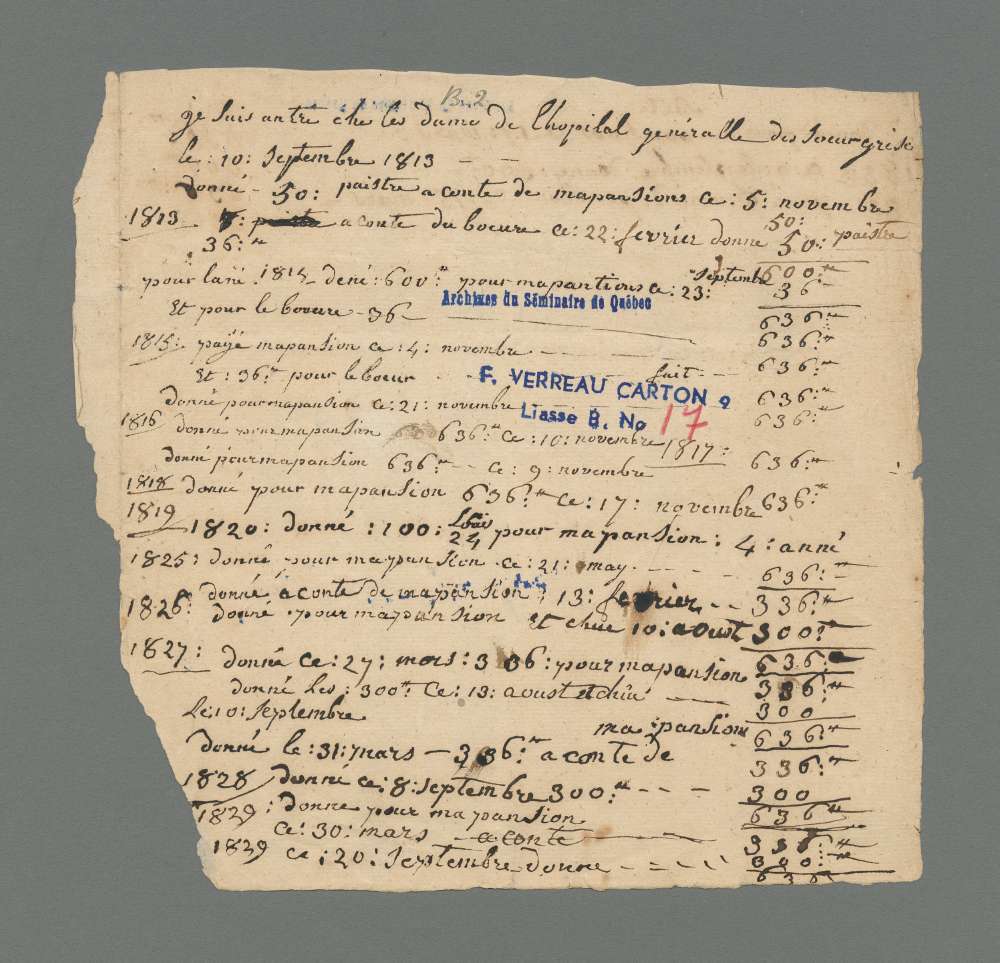 B. 2
je suis antre che les dame de lhopital generalle des soeur grise
le : 10 : septembre 1813 — —
donné - 50 : paistre a conte de mapansions ce : 5 : novembre
1813 8 : paistre a conte du boeure ce : 22 : fevrier donne 50 : paistre
50 :
36 : ʰ
pour lané : 1814 doné : 600 ʰ pour mapantions ce : 23 : septembre 600 : ʰ
36 —
Et pour le boeure - 36 —
Archives du Séminaire de Québec
636 :
1815 : payé mapansion ce : 4 : novembre — — 636 : ʰ
Et : 36 ʰ pour le boeur fait — 636 : ʰ
F. VERREAU CARTON 9
donné pour mapansion ce : 21 : novembre 636 : ʰ
Liasse B. No 17
1816 donné pour mapansion 636 : ʰ ce : 10 : novembre 1817 : 636 : ʰ
donné pour mapansion 636 : ʰ — ce : 9 : novembre 636 : ʰ
1818 donné pour mapansion 636 : ʰ ce : 17 : novembre 636 : ʰ
1819
1820 : donné : 100 : Louis 24 pour mapansion : 4 : anné
1825 : donné pour mapansion ce : 21 : may — — — 636 : —
donné á conte de mapansion : 13 : fevrier — — 336 : ʰ
1826 : donné pour mapansion et chue 10 : aoust 300 : ʰ
636 :
1827 : donné ce : 27 : mars : 336 : pour mapansion 336 : ʰ
donné les : 300 ʰ ce : 13 : aoust et chue — 300
le : 10 : septembre
636 : ʰ
donné le : 31 : mars — 336 : ʰ a conte de ma pansion 336 : ʰ
1828 donné ce : 8 : septembre 300 : ʰ — — — 300
636 ʰ
1829 : donne pour mapansion
ce : 30 : mars — a conte — 336 : ʰ
1829 ce : 20 : septembre donne — — — 300 : ʰ
636